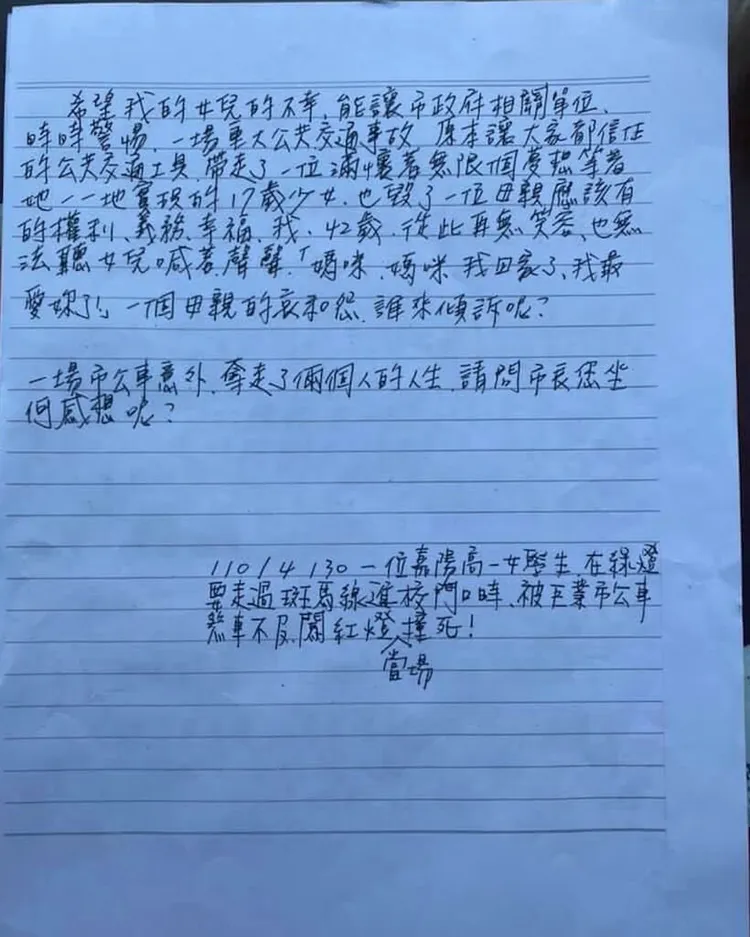 希望我的女兒的不幸，能讓市政府相關單位、
時時警惕，一場重大公共交通事故 原本讓大家都信任
的公共交通工具，帶走了一位滿懷著無限個夢想等著
她一一地實現的17歲少女，也毀了一位母親應該有
的權利、義務、幸福，我，42歲，從此再無笑容、也無
法聽女兒喊著聲聲「媽咪、媽咪 我回家了、我最
愛妳了!」一個母親的哀和怨，誰來傾訴呢?
一場市公車意外，奪走了倆個人的人生，請問市長您坐
何感想呢?
110/4/30 一位嘉陽高一女學生 在綠燈
要走過斑馬線進校門口時、被巨業市公車
煞車不及 闖紅燈 撞死!
當場